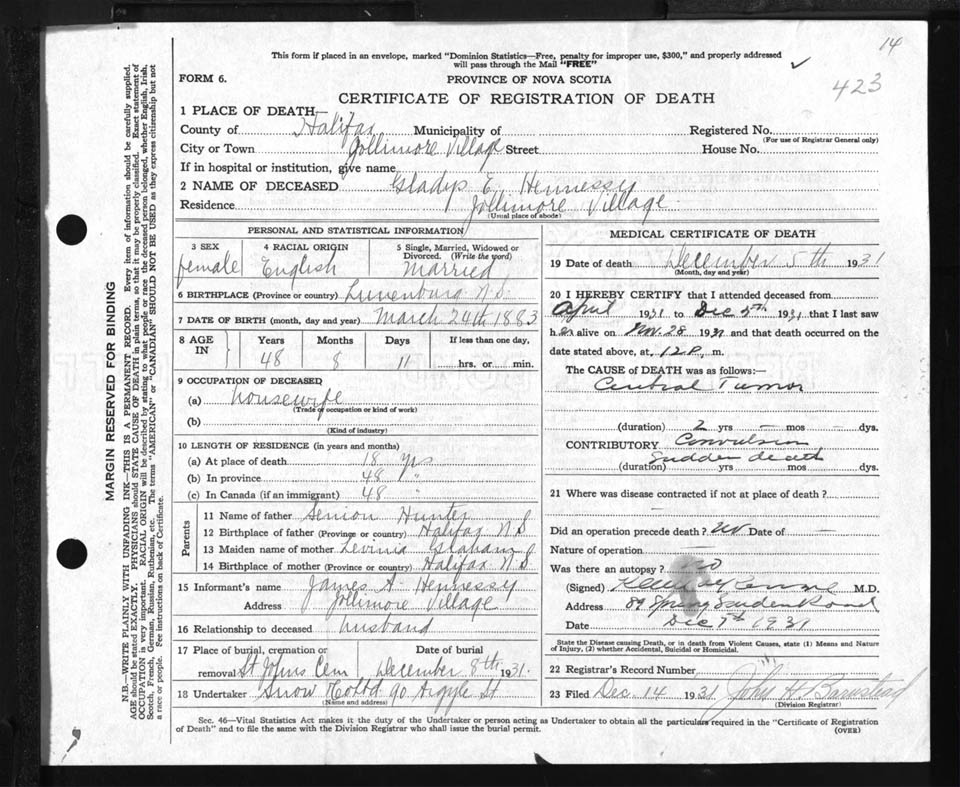 14
This form if placed in an envelope, marked "Dominion Statistics—Free, penalty for improper use, $300," and properly addressed
will pass through the Mail "FREE"
423
FORM 6.
PROVINCE OF NOVA SCOTIA
CERTIFICATE OF REGISTRATION OF DEATH
1 PLACE OF DEATH—
County of Halifax Municipality of Registered No.
(For use of Registrar General only)
City or Town Jollimore Village Street House No.
If in hospital or institution, give name
2 NAME OF DECEASED Gladys E. Hennessy
Residence Jollimore Village
(Usual place of abode)
PERSONAL AND STATISTICAL INFORMATION
3 SEX 4 RACIAL ORIGIN 5 Single, Married, Widowed or
Divorced. (Write the word)
female English Married
6 BIRTHPLACE (Province or country) Lunenburg N.S.
7 DATE OF BIRTH (month, day and year) March 24th 1883
8 AGE IN Years Months Days If less than one day,
48 8 11 hrs. or min.
9 OCCUPATION OF DECEASED
(a) housewife
(Trade or occupation or kind of work)
(b)
(Kind of industry)
10 LENGTH OF RESIDENCE (in years and months)
(a) At place of death 18 yrs
(b) In province 48 "
(c) In Canada (if an immigrant) 48 "
Parents
11 Name of father Hunter
12 Birthplace of father (Province or country) Halifax N S
13 Maiden name of mother Levinia Graham
14 Birthplace of mother (Province or country) Halifax N S
15 Informant's name James A Hennessy
Address Jollimore Village
16 Relationship to deceased husband
17 Place of burial, cremation or Date of burial
removal Cem December 8th 1931
18 Undertaker Snow 90 Argyle St
(Name and address)
MEDICAL CERTIFICATE OF DEATH
19 Date of death December 5th 1931
(Month, day and year)
20 I HEREBY CERTIFY that I attended deceased from
April 1931 to Dec 5th 1931 that I last saw
her alive on Nov. 28 1931 and that death occurred on the
date stated above, at 12 P. m.
The CAUSE of DEATH was as follows:—
Tumor
(duration) 2 yrs — mos — dys.
CONTRIBUTORY Convulsion
Sudden death
(duration) yrs mos dys.
21 Where was disease contracted if not at place of death?
Did an operation precede death? No Date of —
Nature of operation —
Was there an autopsy? no
(Signed) M.D.
Address 89 Spring Garden Road
Date Dec 7th 1931
State the Disease causing Death, or in death from Violent Causes, state (1) Means and Nature
of Injury, (2) whether Accidental, Suicidal or Homicidal.
22 Registrar's Record Number
23 Filed Dec. 14 1931 John H Barnstead
(Division Registrar)
Sec. 46—Vital Statistics Act makes it the duty of the Undertaker or person acting as Undertaker to obtain all the particulars required in the "Certificate of Registration
of Death" and to file the same with the Division Registrar who shall issue the burial permit.
(OVER)
MARGIN RESERVED FOR BINDING
N.B.—WRITE PLAINLY WITH UNFADING INK—THIS IS A PERMANENT RECORD. Every item of information should be carefully supplied.
AGE should be stated EXACTLY. PHYSICIANS should STATE CAUSE OF DEATH in plain terms, so that it may be properly classified. Exact statement of
OCCUPATION is very important. RACIAL ORIGIN will be described by stating to what people or race the deceased person belonged, whether English, Irish,
Scotch, French, German, Russian, Ruthenian, etc. The terms "AMERICAN" or "CANADIAN" SHOULD NOT BE USED as they express citizenship but not
a race or people. See instructions on back of Certificate.